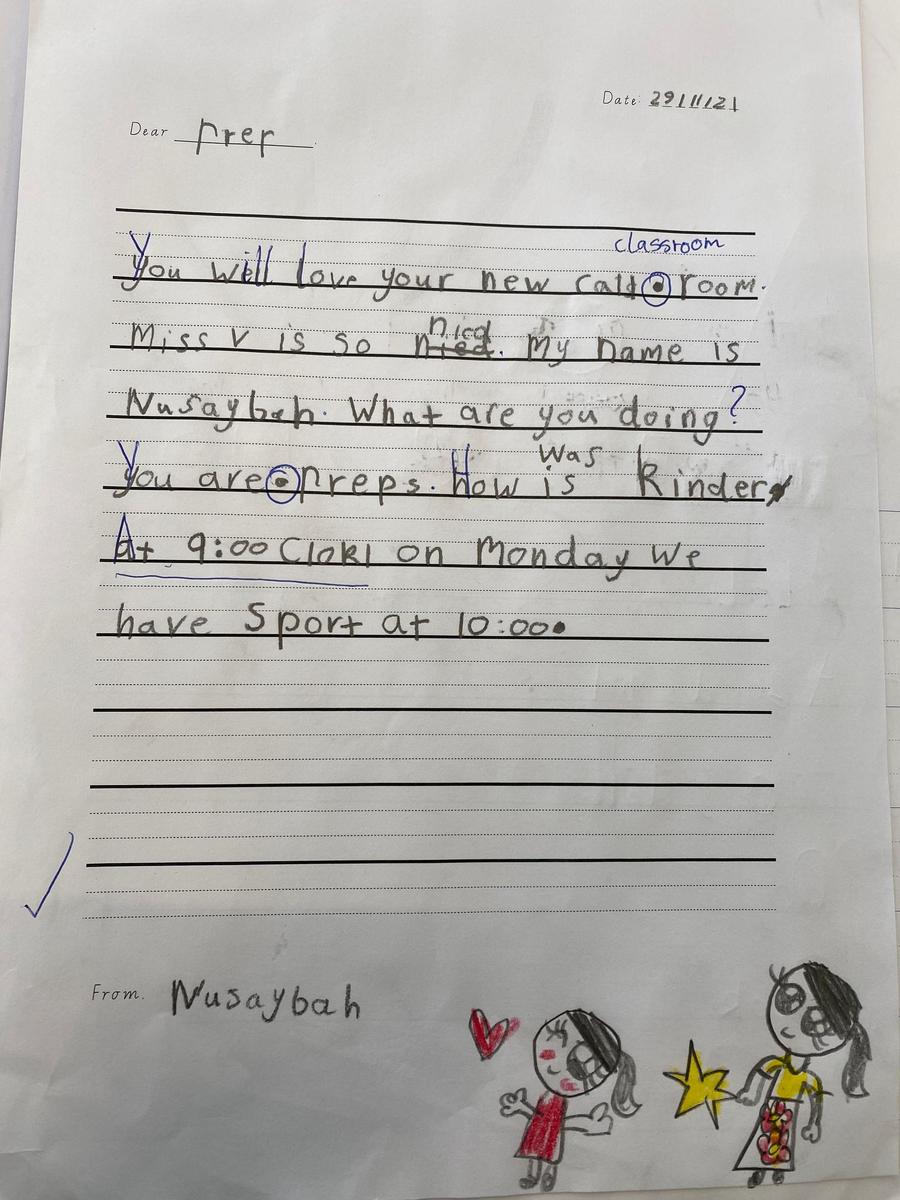 Date: 29/11/21
Dear prep
classroom
You will love your new room.
nicd
Miss V is so nied. My name is
Nusaybah. What are you doing?
was
You are preps. How is Kinder
At 9:00 Clokl on Monday we
have Sport at 10:00.
From. Nusaybah